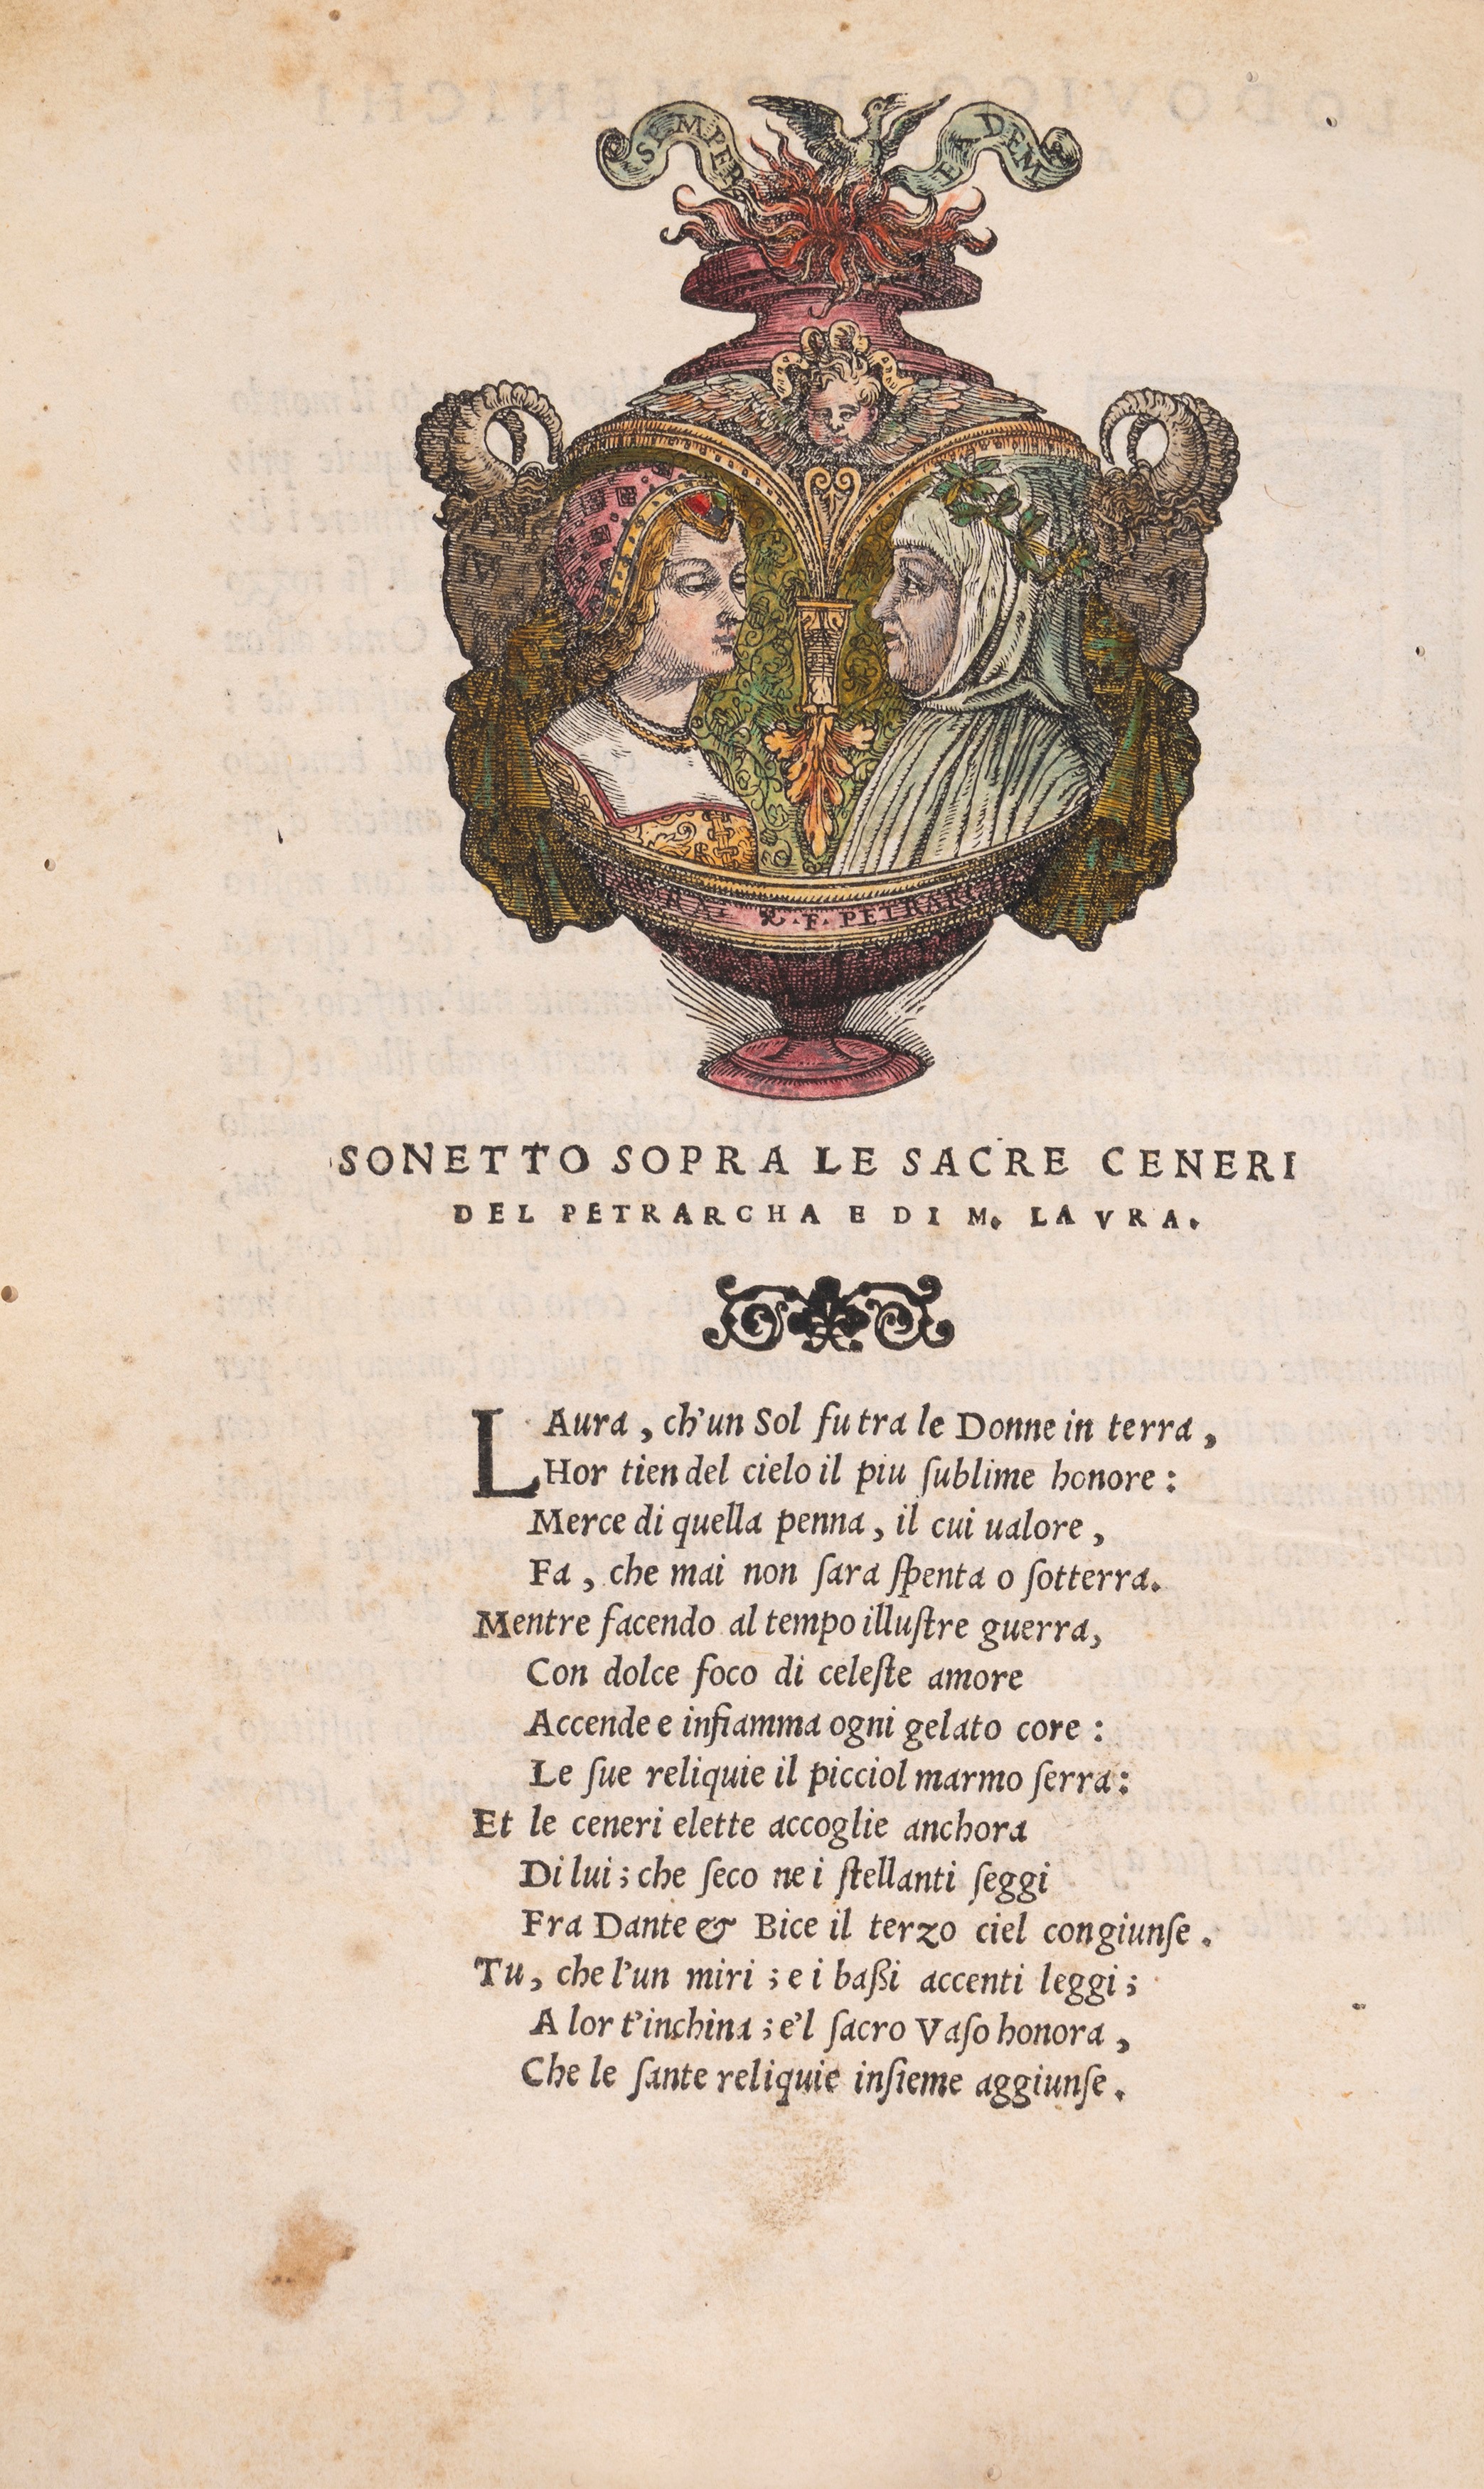 SEMPER EADEM
RA. & .F. PETRARC
SONETTO SOPRA LE SACRE CENERI
DEL PETRARCHA E DI M. LAVRA.
LAura, ch'un Sol fu tra le Donne in terra,
Hor tien del cielo il piu ſublime honore:
Merce di quella penna, il cui ualore,
Fa, che mai non ſara ſpenta o ſotterra.
Mentre facendo al tempo illuſtre guerra,
Con dolce foco di celeſte amore
Accende e infiamma ogni gelato core:
Le ſue reliquie il picciol marmo ſerra:
Et le ceneri elette accoglie anchora
Di lui; che ſeco ne i ſtellanti ſeggi
Fra Dante & Bice il terzo ciel congiunſe.
Tu, che l'un miri; e i baßi accenti leggi;
A lor t'inchina; e'l ſacro Vaſo honora,
Che le ſante reliquie inſieme aggiunſe.